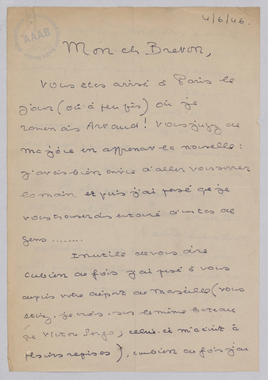 AAAB
4/6/46.
Mon ch Breton,
Vous êtes arrivé à Paris le
jour (où à peu près) où je
ramenais Artaud! Vous jugez de
ma joie en apprenant la nouvelle:
j'avais bien envie d'aller vous serrer
la main et puis j'ai pensé que je
vous trouverais entouré d'un tas de
gens ........
Inutile de vous dire
combien de fois j'ai pensé à vous
depuis votre départ de Marseille (vous
étiez, je crois, sur le même bateau
que Victor Serge, celui-ci m'écrit à
plusieurs reprises), combien de fois j'ai